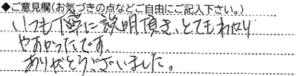 ◆ご意見欄(お気づきの点などご自由にご記入下さい。)
いつも丁寧に説明頂き、とてもわかり
やすかったです。
ありがとうございました。